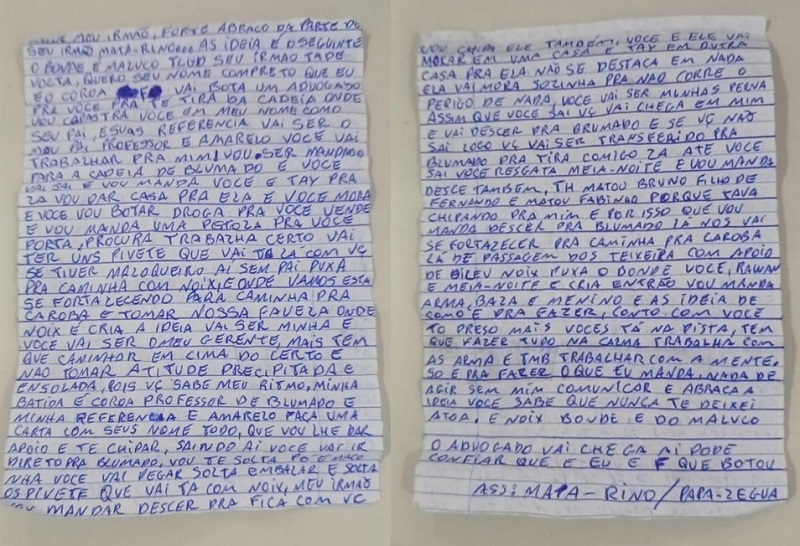 MEU IRMÃO, FORTE ABRAÇO DA PARTE DO
SEU IRMÃO MATA-RINO... AS IDEIA E DSEGUINTE
O BONDE E MALUCO TLGD SEU IRMÃO TADE
VOLTA, QUERO SEU NOME COMPRETO QUE EU
E O COROA VAI BOTA UM ADVOGADO
PRA VOCE PRA TE TIRA DA CADEIA ONDE
VOU CADASTRA VOCE EM MEU NOME COMO
SEU PAI, E SUAS REFERENCIA VAI SER O
PROFESSOR E AMARELO VOCE VAI
TRABALHAR PRA MIM, VOU SER MANDADO
PARA A CADEIA DE BLUMADO E VOCE
VAI SAI E VOU MANDA VOCE E TAY PRA
LA VOU DAR CASA PRA ELA E VOCE MORA
E VOCE VOU BOTAR DROGA PRA VOCE VENDE
E VOU MANDA UMA PETOLA PRA VOCE
PORTA, PROCURA TRABALHA CERTO VAI
TER UNS PIVETE QUE VAI TA LA COM VÇ
SE TIVER MALOQUEIRO AI SEM PAI PUXA
PRA CAMINHA COM NOIX, E ONDE VAMOS ESTA
SE FORTALECENDO PARA CAMINHA PRA
CAROBA E TOMAR NOSSA FAVELA ONDE
NOIX E CRIA A IDEIA VAI SER MINHA E
VOCE VAI SER O MEU GERENTE, MAIS TEM
QUE CAMINHAR EM CIMA DO CERTO E
NÃO TOMAR ATITUDE PRECIPITADA E
ENSOLADA, POIS VÇ SABE MEU RITMO, MINHA
BATIDA E COROA PROFESSOR DE BLUMADO E
MINHA REFERENCIA E AMARELO FAÇA UMA
CARTA COM SEUS NOME TODO, QUE VOU LHE DAR
APOIO E TE CHIPAR, SAINDO AI VOCE VAI IR
DIRETO PRA BLUMADO, VOU TE SOLTA
NHA VOCE VAI PEGAR SOLTA EMBALAR E SOLTA
OS PIVETE QUE VAI TA COM NOIX, MEU IRMÃO
VOU MANDAR DESCER PRA FICA COM VÇ
VOU CHIPA ELE TAMBÉM, VOCE E ELE VAI
MORAR EM UMA CASA E TAY EM OUTRA
CASA PRA ELA NÃO SE DESTACA EM NADA
ELA VAI MORA SOZINHA PRA NÃO CORRE O
PERIGO DE NADA, VOCE VAI SER MINHAS PERNA
ASSIM QUE VOCE SAI VÇ VAI CHEGA EM MIM
E VAI DESCER PRA BRUMADO E SE VÇ NÃO
SAI LOGO VÇ VAI SER TRANSFERIDO PRA
BLUMADO PRA TIRA COMIGO LA ATÉ VOCE
SAI VOCE RESGATA MEIA-NOITE E VOU MANDA
DESCE TAMBEM, TH MATOU BRUNO FILHO DE
FERNANDO E MATOU FABINHO PORQUE TAVA
CHIPANDO PRA MIM E POR ISSO QUE VOU
MANDA DESCER PRA BLUMADO LÁ NOS VAI
SE FORTALECER PRA CAMINHA PRA CAROBA
LÁ DE PASSAGEM DOS TEIXEIRA COM APOIO
DE BILEU NOIX PUXA O BONDE VOCE, RAWAN
E MEIA-NOITE E CRIA ENTRÃO VOU MANDA
ARMA, BALA E MENINO E AS IDEIA DE
COMO E PRA FAZER, CONTO COM VOCE
TO PRESO MAIS VOCES TÁ NA PISTA, TEM
QUE FAZER TUDO NA CALMA TRABALHA COM
AS ARMA E TMB TRABALHAR COM A MENTE.
SO E PRA FAZER O QUE EU MANDA, NADA DE
AGIR SEM MIM COMUNICAR E ABRACA A
IDEIA VOCE SABE QUE NUNCA TE DEIXEI
ATOA. E NOIX BONDE E DO MALUCO
O ADVOGADO VAI CHEGA AI PODE
CONFIAR QUE E EU E F QUE BOTOU
ASS: MATA-RINO/PAPA-LEGUA